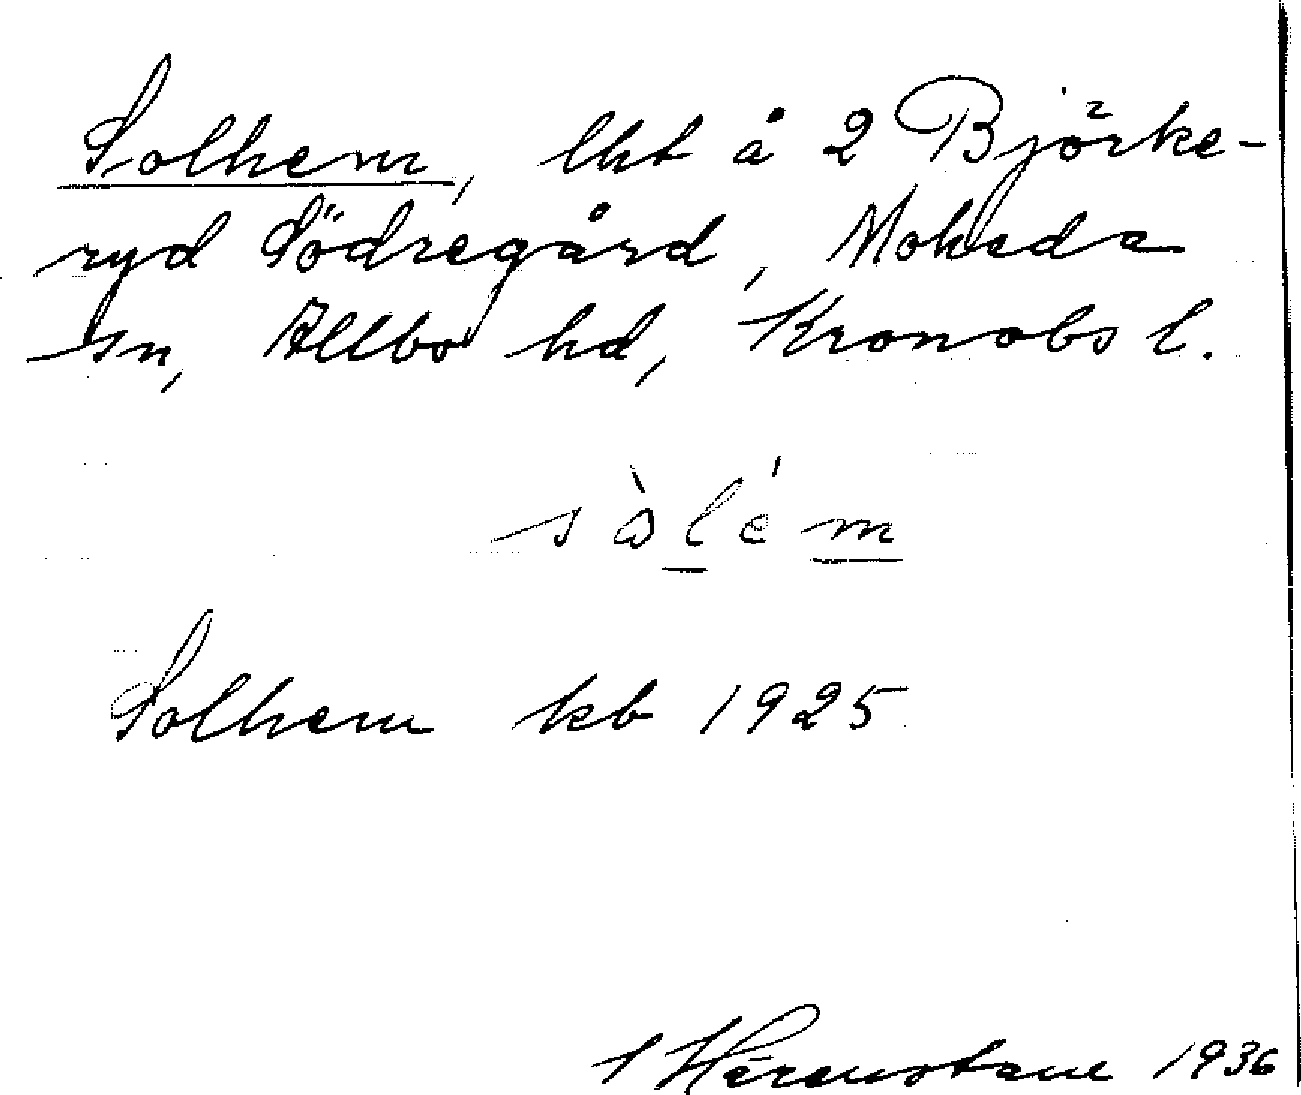 Solhem, lht å 2 Björke-
ryd Södregård, Moheda
sn, Allbo hd, Kronobs l.
sòlém
Solhem kb 1925
1936